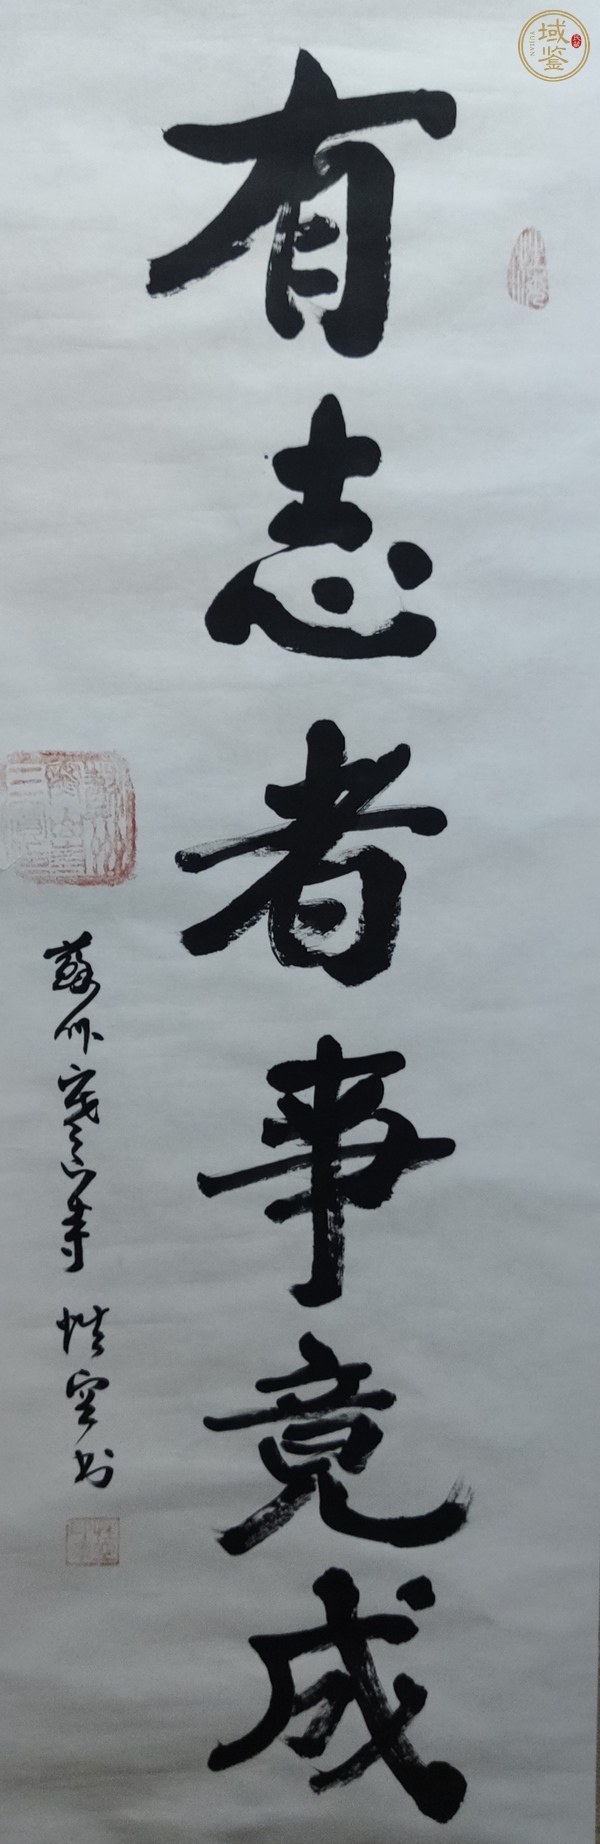 有志者事竟成
蘇州寒山寺 性空书
域鉴
YUJIAN